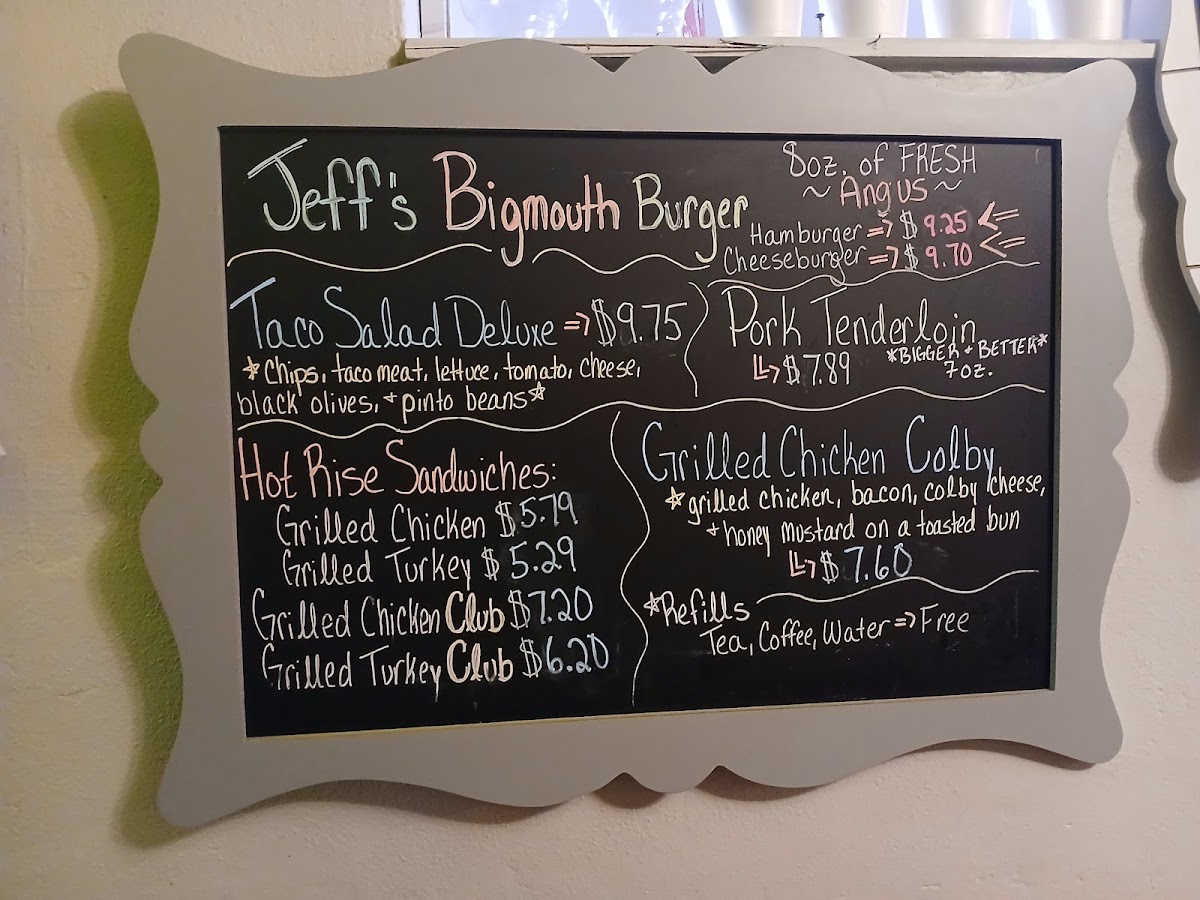 Jeff's Bigmouth Burger
8oz. of FRESH
~ Angus ~
Hamburger => $ 9.25 <=
Cheeseburger => $ 9.70 <=
Taco Salad Deluxe => $9.75
*Chips, taco meat, lettuce, tomato, cheese,
black olives, + pinto beans*
Pork Tenderloin
↳ $7.89
*BIGGER + BETTER*
7oz.
Hot Rise Sandwiches:
Grilled Chicken $5.79
Grilled Turkey $5.29
Grilled Chicken Club $7.20
Grilled Turkey Club $6.20
Grilled Chicken Colby
*grilled chicken, bacon, colby cheese,
+ honey mustard on a toasted bun
↳ $7.60
*Refills
Tea, Coffee, Water => Free